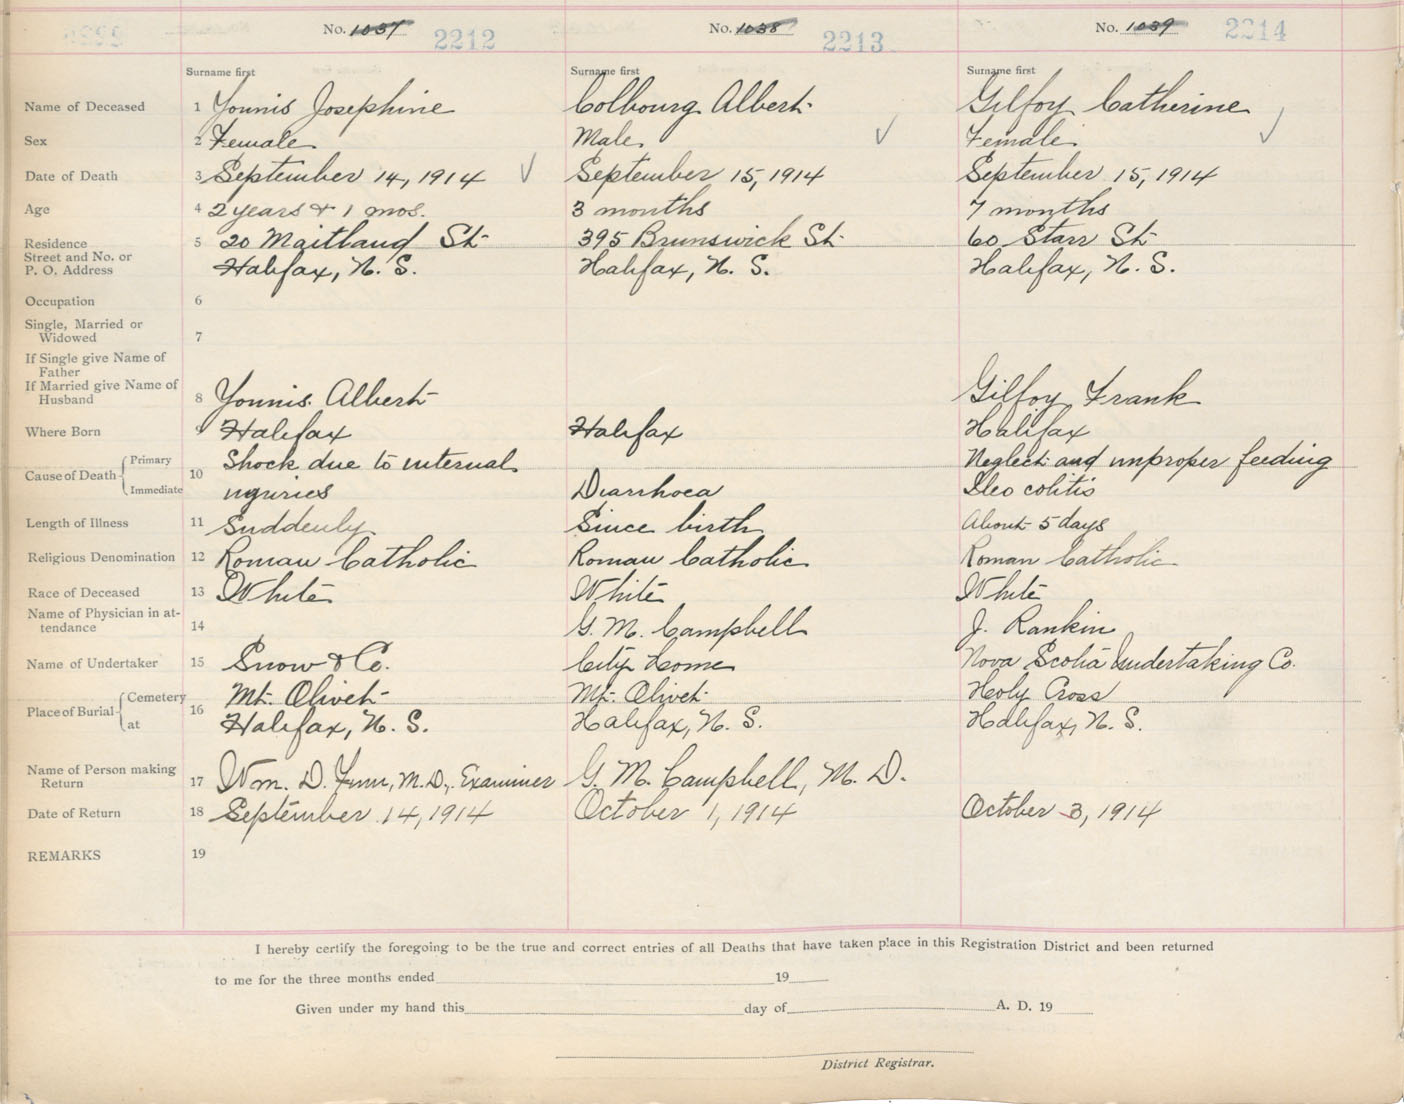 No. 1037 2212
No. 1038 2213
No. 1039 2214
Surname first Surname first Surname first
Name of Deceased 1 Younis Josephine Colbourg Albert Gilfoy Catherine
Sex 2 Female Male Female
Date of Death 3 September 14, 1914 September 15, 1914 September 15, 1914
Age 4 2 years & 1 mos. 3 months 7 months
Residence 5 20 Maitland St 395 Brunswick St 60 Starr St
Street and No. or
P. O. Address Halifax, N. S. Halifax, N. S. Halifax, N. S.
Occupation 6
Single, Married or
Widowed 7
If Single give Name of
Father
If Married give Name of
Husband 8 Younis Albert Gilfoy Frank
Where Born 9 Halifax Halifax Halifax
Primary Shock due to internal Neglect and improper feeding
Cause of Death 10
Immediate injuries Diarrhoea Ileo colitis
Length of Illness 11 Suddenly Since birth About 5 days
Religious Denomination 12 Roman Catholic Roman Catholic Roman Catholic
Race of Deceased 13 White White White
Name of Physician in at-
tendance 14 G. M. Campbell J. Rankin
Name of Undertaker 15 Snow & Co. City Home Nova Scotia Undertaking Co.
Cemetery Mt. Olivet Mt. Olivet Holy Cross
Place of Burial 16
at Halifax, N. S. Halifax, N. S. Halifax, N. S.
Name of Person making
Return 17 Wm. D. Finn, M.D., Examiner G. M. Campbell, M. D.
Date of Return 18 September 14, 1914 October 1, 1914 October 3, 1914
REMARKS 19
I hereby certify the foregoing to be the true and correct entries of all Deaths that have taken place in this Registration District and been returned
to me for the three months ended 19
Given under my hand this day of A. D. 19
District Registrar.